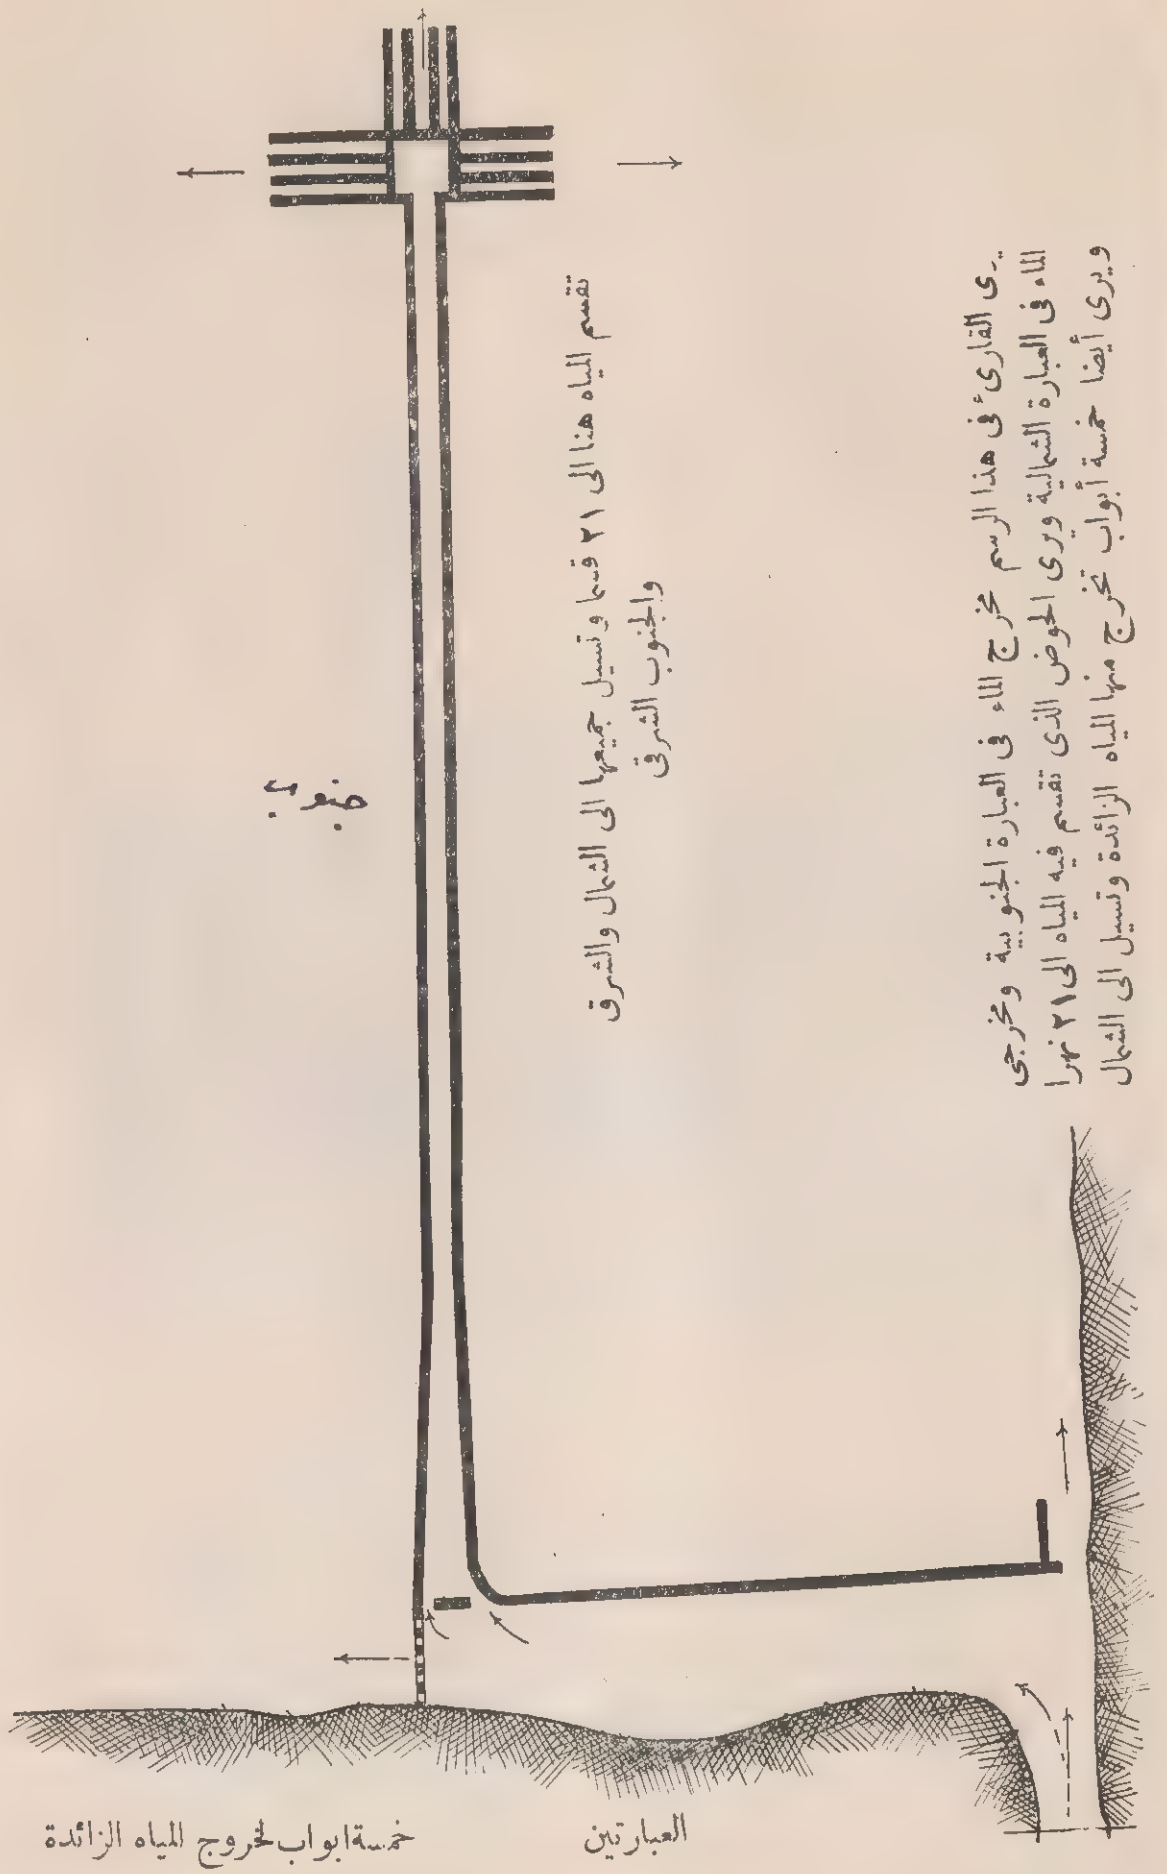 يرى القارىء فى هذا الرسم مخرج الماء فى العبارة الجنوبية ومخرجى
الماء فى العبارة الشمالية ويرى الحوض الذى تقسم فيه المياه الى ٢١ نهرا
ويرى أيضا خمسة أبواب تخرج منها المياه الزائدة وتسيل الى الشمال
تقسم المياه هنا الى ٢١ قسما وتسيل جميعها الى الشمال والشرق
والجنوب الشرقى
جنوب
خمسة ابواب لخروج المياه الزائدة
العبارتين